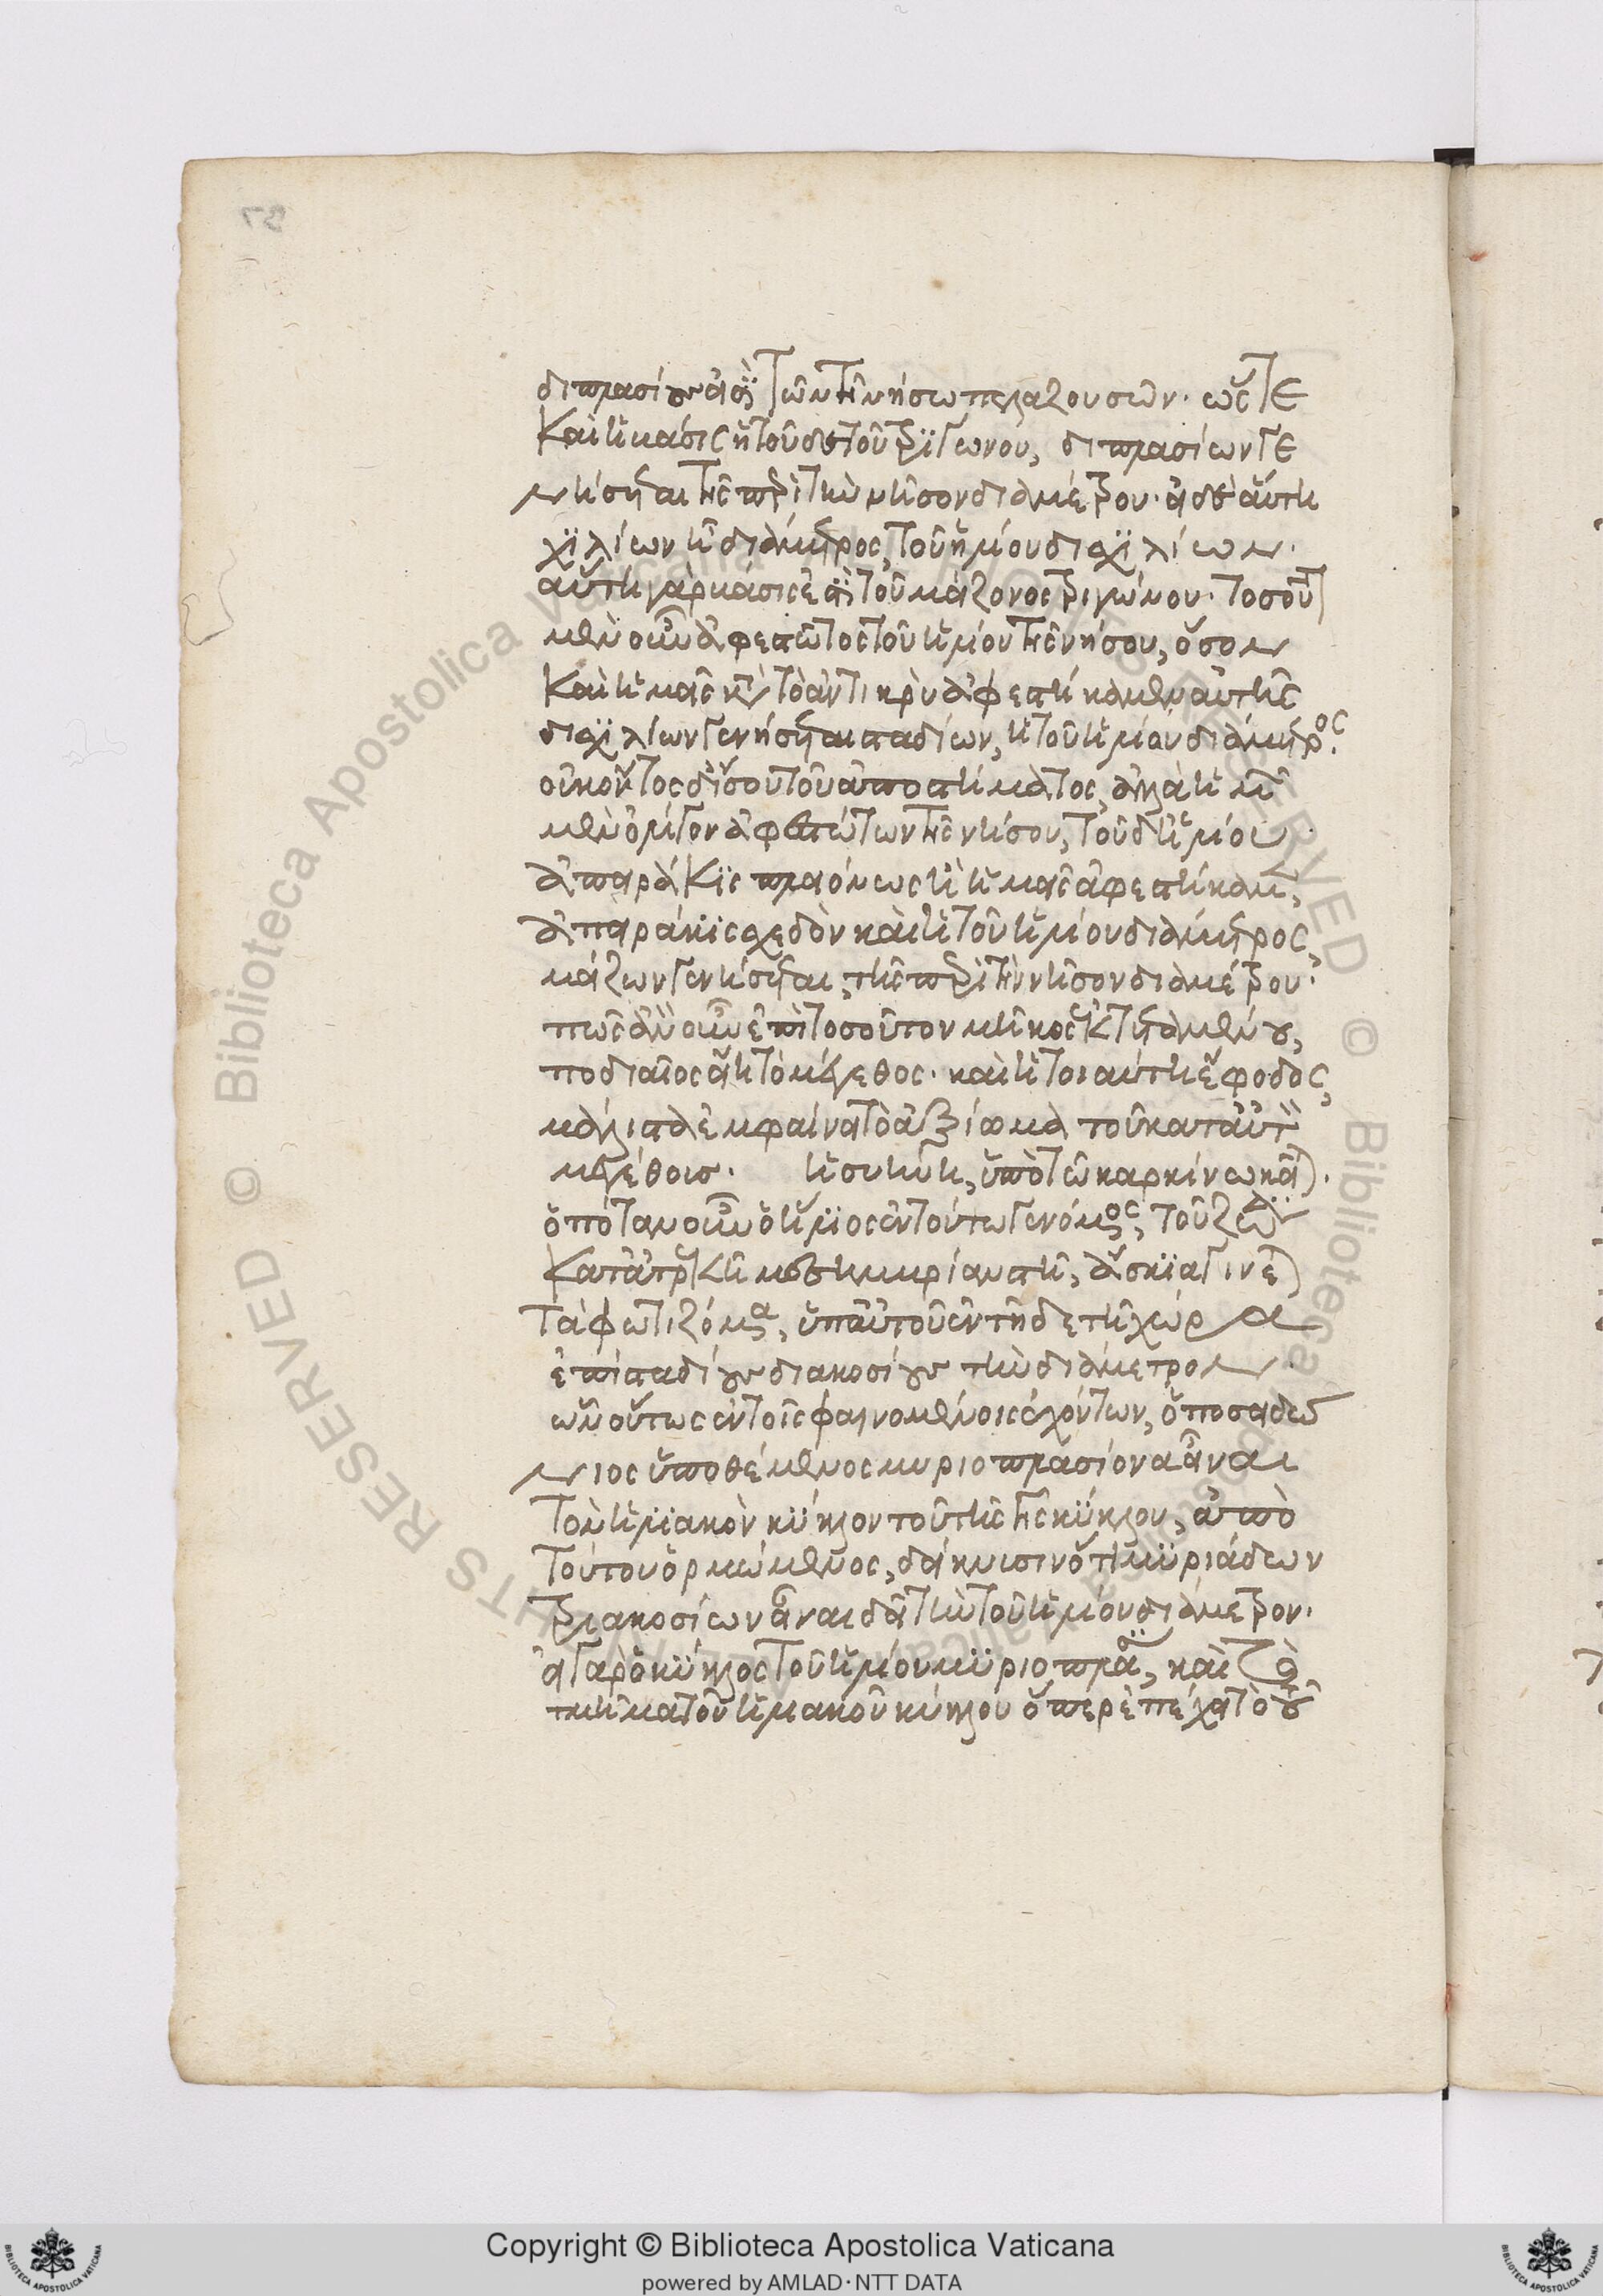 διπλασίους εἰσὶ τῶν τῆ νήσω πελαζουσῶν. ὥστε
καὶ ἡ βάσις ἡ τοῦδε τοῦ τριγώνου, διπλασίων γε
νήσεται τῆς περὶ τὴν νῆσον διαμέτρου. εἰ δὲ αὕτη
χιλίων ἡ διάμετρος, τοῦ ἡλίου δισχιλίων.
αὕτη γὰρ βάσις ἐστὶ τοῦ μείζονος τριγώνου. τοσοῦτ
μὲν οὖν ἀφεστῶτος τοῦ ἡλίου τῆς νήσου, ὅσον
καὶ ἡμεῖς κατὰ τὸ ἀντικρὺ ἀφεστήκαμεν αὐτῆς
δισχιλίων γενήσεται σταδίων, ἡ τοῦ ἡλίου διάμετρος.
οὐκ ὄντος δ' ἴσου τοῦ ἀποστήματος, ἀλλὰ ἡμῶν
μὲν ὀλίγον ἀφεστώτων τῆς νήσου, τοῦ δ' ἡλίου
ἀπειράκις πλεῖον ὡς ἢ ἡμεῖς ἀφεστήκαμεν,
ἀπειράκις σχεδὸν καὶ ἡ τοῦ ἡλίου διάμετρος,
μείζων γενήσεται, τῆς περὶ τὴν νῆσον διαμέτρου.
πῶς ἂν οὖν ἐπὶ τοσοῦτον μῆκος ἐκτεταμένου,
ποδιαῖος εἴη τὸ μέγεθος. καὶ ἡ τοιαύτη ἔφοδος,
μάλιστα ἐμφαίνει τὸ ἀξίωμα τοῦ κατ' αὐτὸν
μεγέθους. ἡ συήνη, ὑπὸ τῶ καρκίνω κεῖται.
ὁπόταν οὖν ὁ ἥλιος ἐν τούτω γενόμενος, τοῦ ζωδίου
κατὰ ἀκριβῆ μεσημβρίαν στῆ, ἄσκια γίνεται
τὰ φωτιζόμενα, ὑπ' αὐτοῦ ἐν τῆδε τῆ χώρα
ἐπὶ σταδίους διακοσίους τὴν διάμετρον.
ὧν οὕτως ἐν τοῖς φαινομένοις ἐχόντων, ὁ ποσειδώ
νιος ὑποθέμενος μυριοπλασίονα εἶναι
τὸν ἡλιακὸν κύκλον τοῦ τῆς γῆς κύκλου, ἀπὸ
τούτου ὁρμώμενος, δείκνυσιν ὅτι μυριάδων
τριακοσίων εἶναι δεῖ τὴν τοῦ ἡλίου διάμετρον.
εἰ γὰρ ὁ κύκλος τοῦ ἡλίου μυριοπλασίων, καὶ τὸ
τμῆμα τοῦ ἡλιακοῦ κύκλου ὅπερ ἐπέχει τὸ τοῦ
Copyright © Biblioteca Apostolica Vaticana
powered by AMLAD·NTT DATA